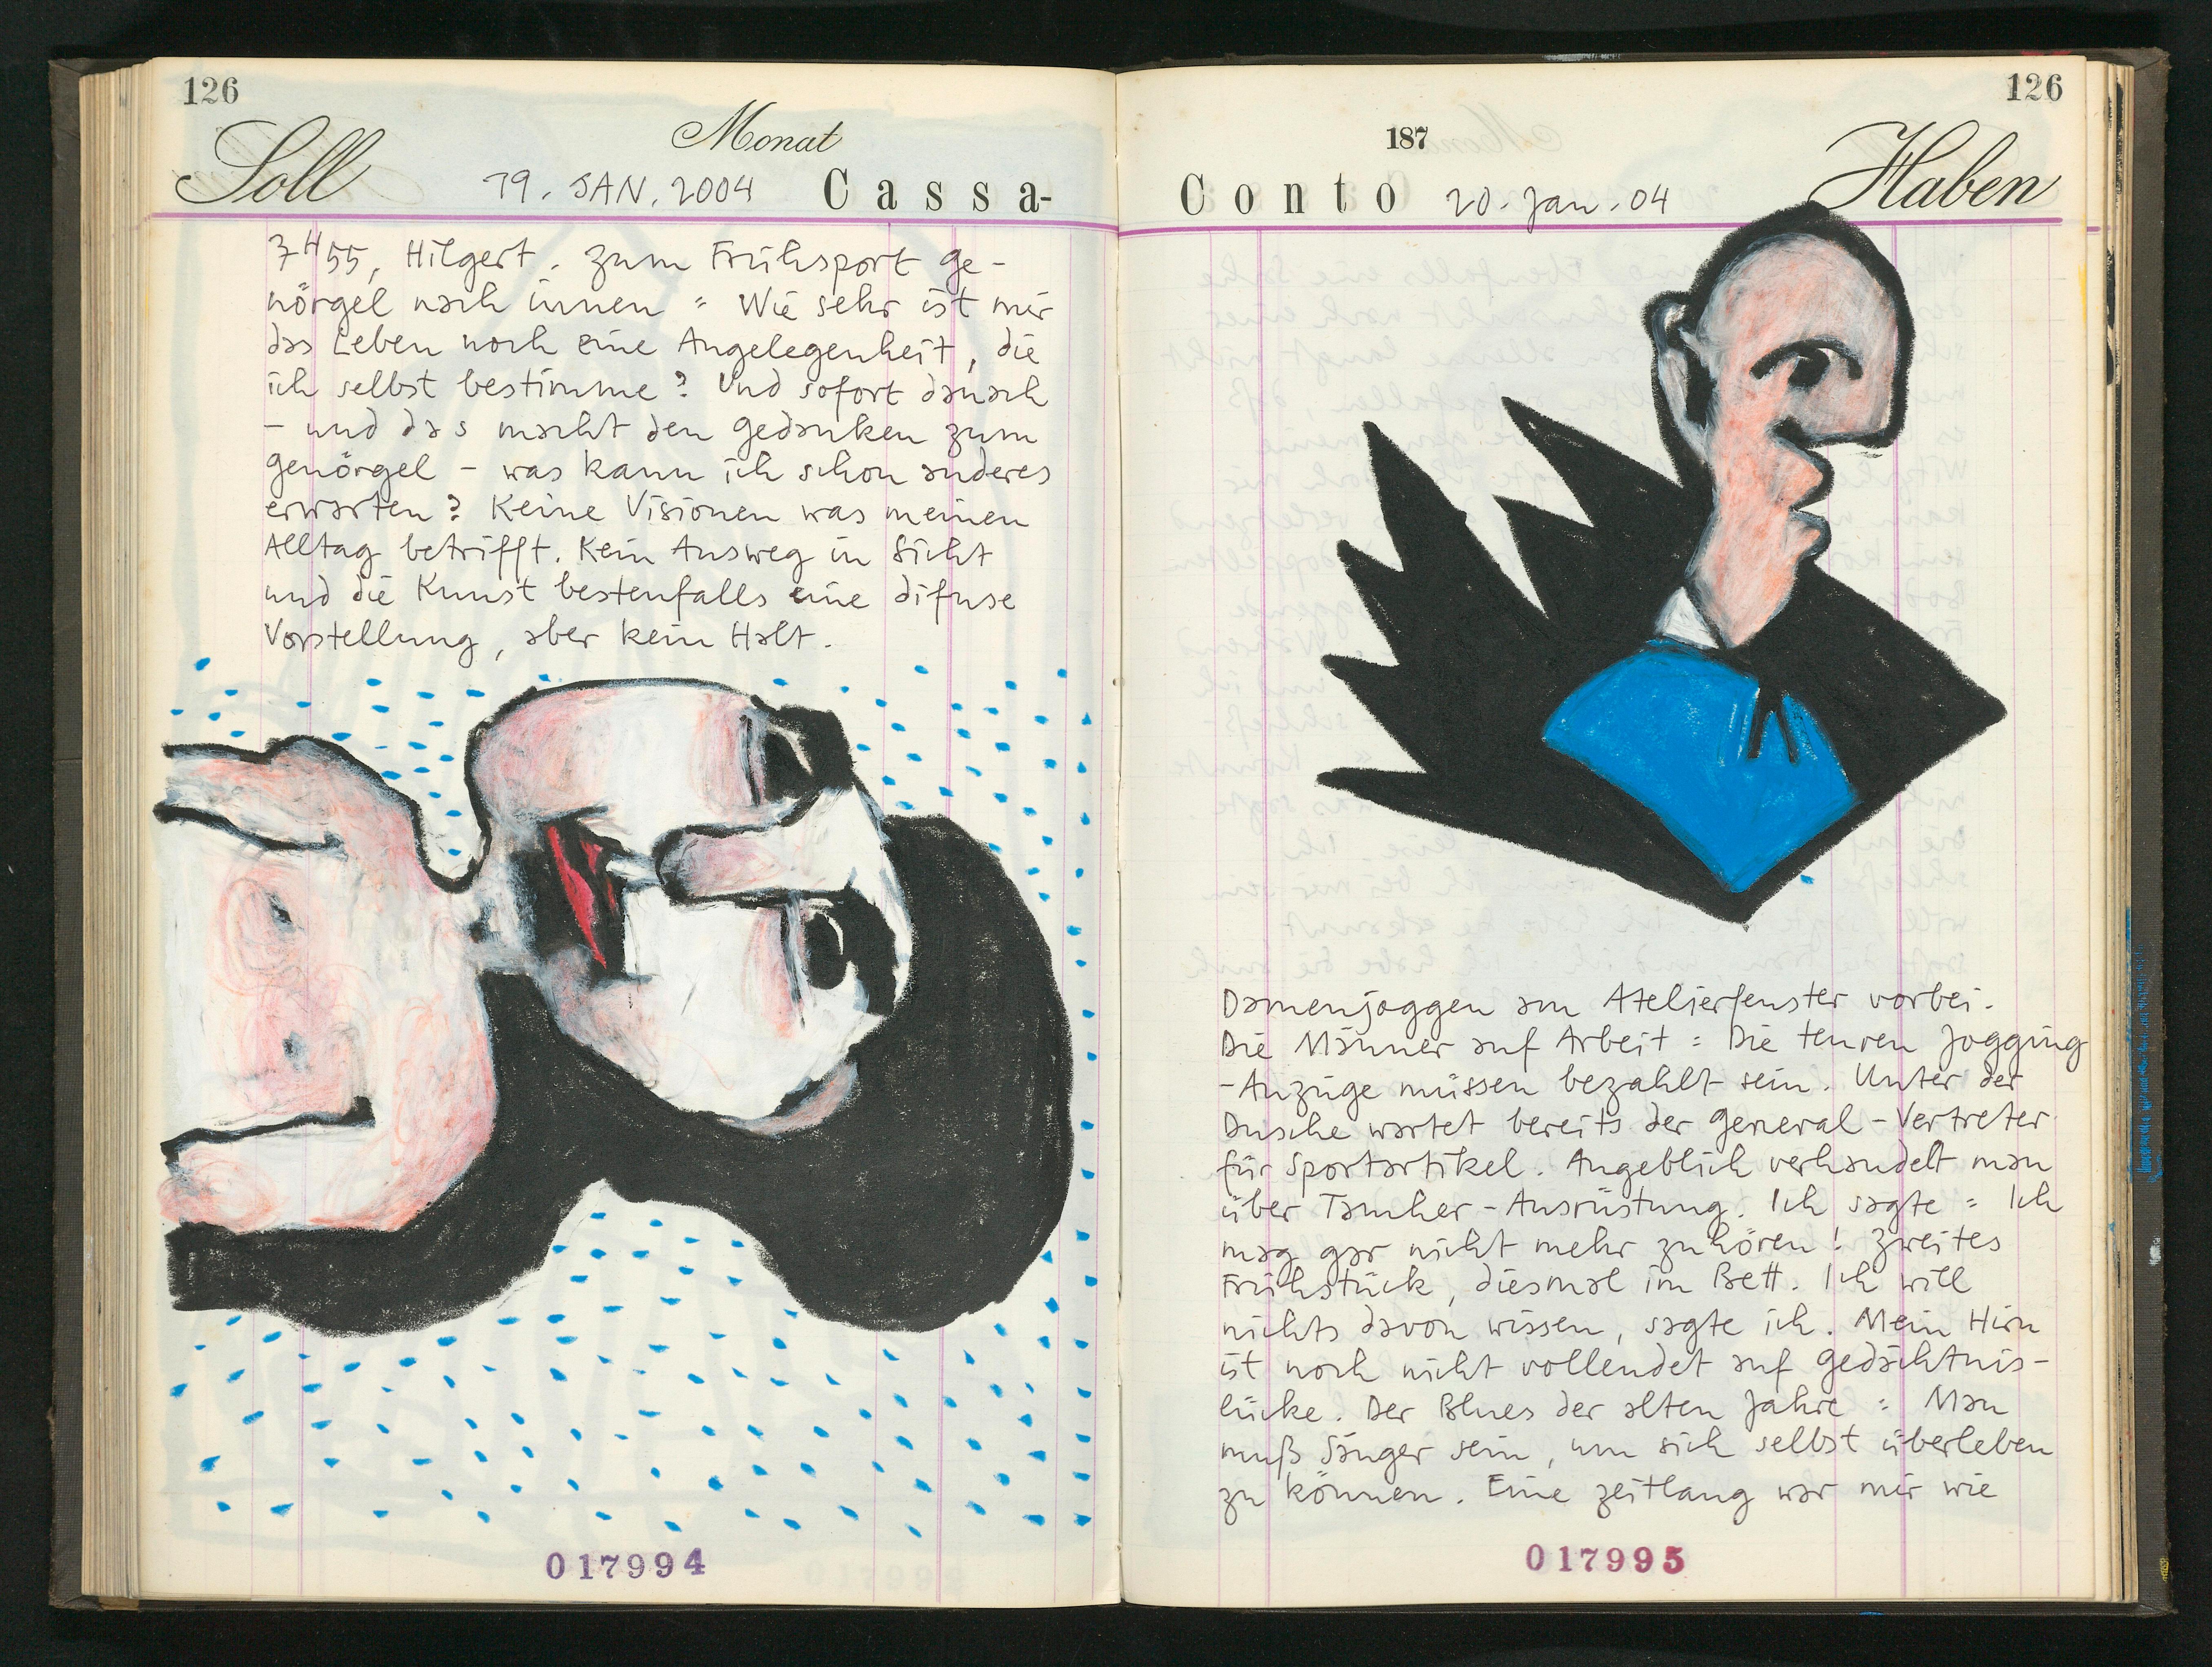 126
Soll
Monat
19. JAN. 2004
Cassa-
7H55, Hilgert. Zum Frühsport ge-
nörgel nach innen: Wie sehr ist mir
das Leben noch eine Angelegenheit, die
ich selbst bestimme? Und sofort danach
- und das macht den Gedanken zum
Genörgel - was kann ich schon anderes
erwarten? Keine Visionen was meinen
Alltag betrifft. Kein Ausweg in Sicht
und die Kunst bestenfalls eine difuse
Vorstellung, aber kein Halt.
017994
126
187
Conto
20. Jan. 04
Haben
Damenjoggen am Atelierfenster vorbei.
Die Männer auf Arbeit: Die teuren Jogging
-Anzüge müssen bezahlt sein. Unter der
Dusche wartet bereits der General-Vertreter
für Sportartikel. Angeblich verhandelt man
über Taucher-Ausrüstung. Ich sagte: Ich
mag gar nicht mehr zuhören! Zweites
Frühstück, diesmal im Bett. Ich will
nichts davon wissen, sagte ich. Mein Hirn
ist noch nicht vollendet auf Gedächtnis-
lücke. Der Blues der alten Jahre: Man
muß Sänger sein, um sich selbst überleben
zu können. Eine zeitlang war mir wie
017995